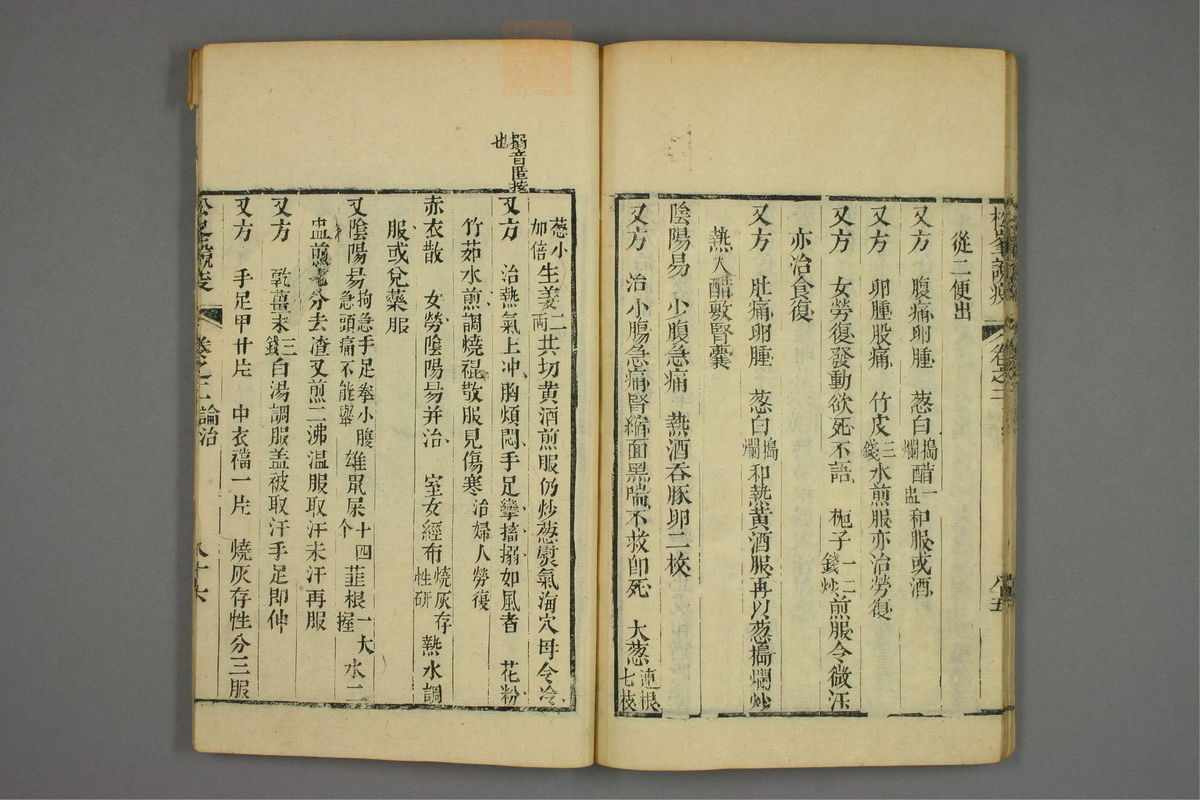 松峯說疫
卷之二
八十五
從二便出
又方 腹痛卵腫 葱白搗爛醋一盅和服或酒
又方 卵腫股痛 竹皮三錢水煎服亦治勞復
又方 女勞復發動欲死不語 梔子一二錢炒煎服令微汗
亦治食復
又方 肚痛卵腫 葱白搗爛和熱黃酒服再以葱搗爛炒
熱入醋敷腎囊
陰陽易 少腹急痛 熱酒吞豚卵二枚
又方 治小腸急痛腎縮面黑喘不救卽死 大葱連根七枝
葱小如倍生姜二兩共切黄酒煎服仍炒葱熨氣海穴毋令冷
搦音匿按也
又方 治熱氣上冲胸煩悶手足攣搐搦如風者 花粉
竹茹水煎調燒裩散服見傷寒治婦人勞復
赤衣散 女勞陰陽易并治 室女經布燒灰存性研熱水調
服或兌藥服
又陰陽易拘急手足拳小腹急頭痛不能舉雄鼠屎十四个韮根一大握水二
盅煎七分去渣又煎二沸温服取汗未汗再服
又方 乾薑末三錢白湯調服盖被取汗手足即伸
又方 手足甲廿片 中衣襠一片 燒灰存性分三服
松峯說疫
卷之二論治
八十六